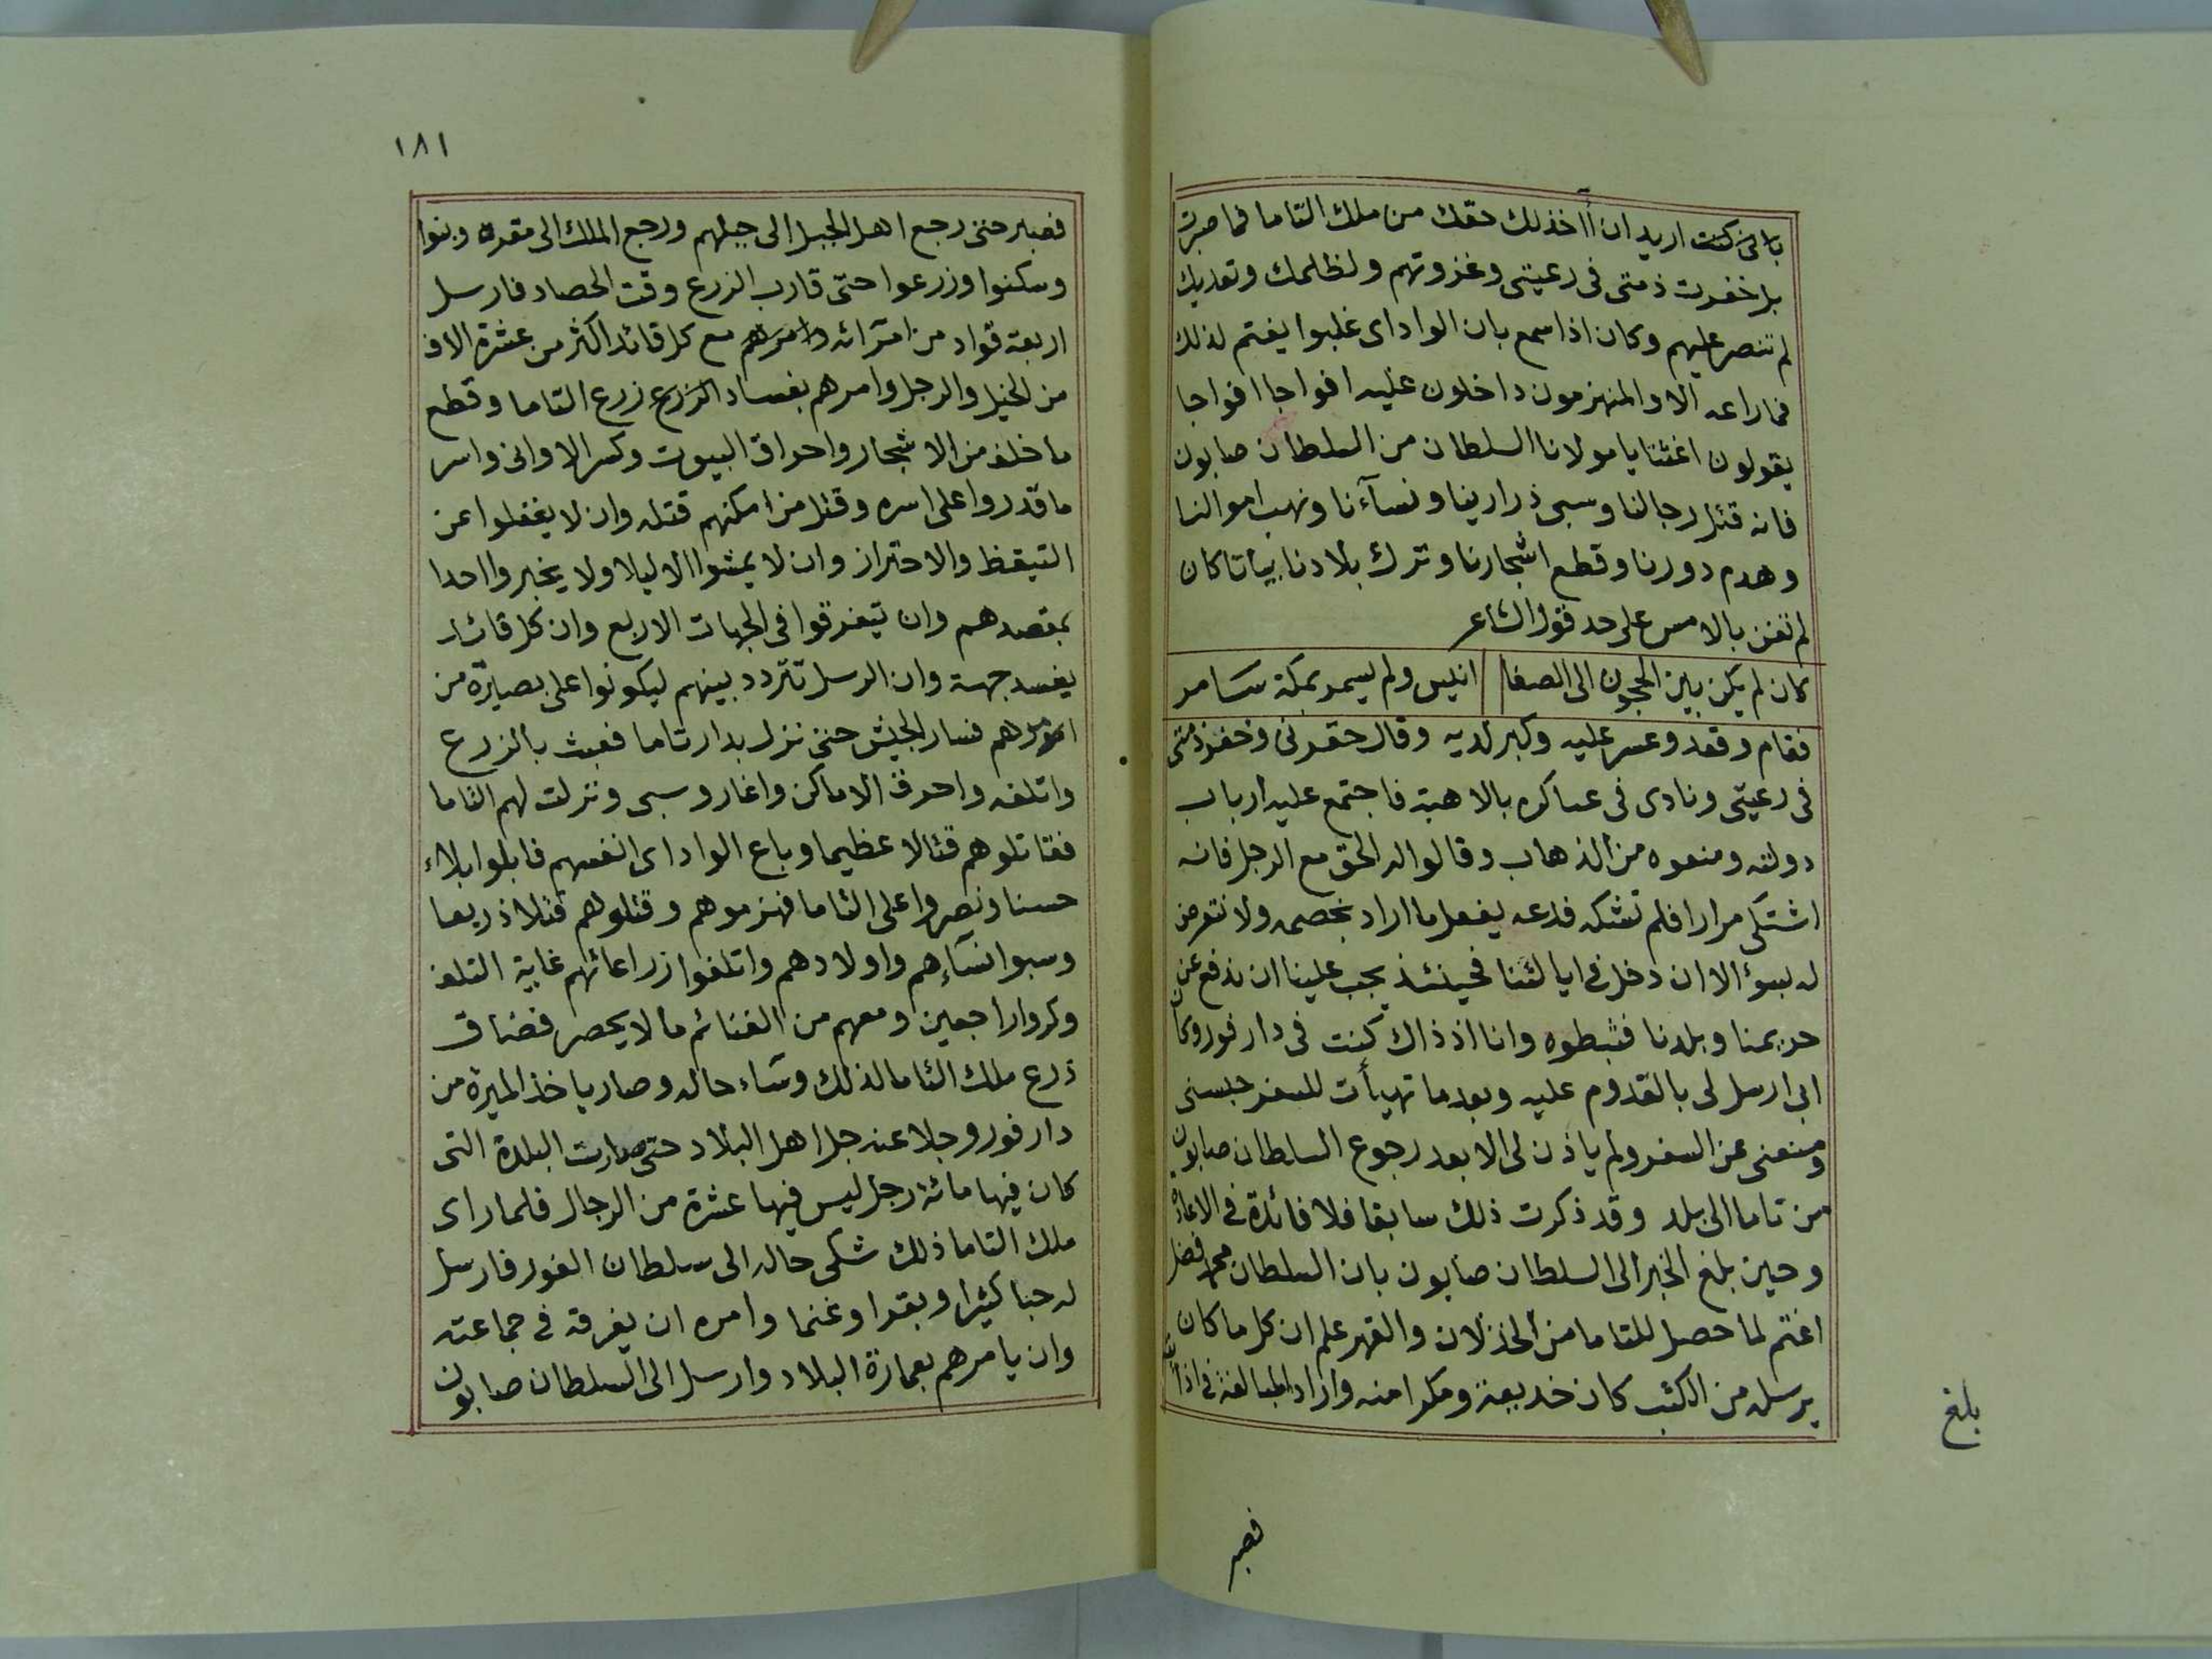 بانى كنت اريد ان أاخذ لك حقك من ملك التاما فما صبرت
بل خفرت ذمتى فى رعيتى وغزوتهم ولظلمك وتعديك
لم تنصر عليهم وكان اذا سمع بان الواداى غلبوا يغتم لذلك
فما راعه الا والمنهزمون داخلون عليه افواجا افواجا
يقولون اغثنا يا مولانا السلطان من السلطان صابون
فانه قتل رجالنا وسبى ذرارينا ونسآءنا ونهب اموالنا
وهدم دورنا وقطع اشجارنا وترك بلادنا بياتا كان
لم تغن بالامس على حد قول الشاعر
كان لم يكن بين الحجون الى الصفا انيس ولم يسمر بمكة سامر
فقام وقعد وعسر عليه وكبر لديه وقال حقرنى وخفر ذمتى
فى رعيتى ونادى فى عساكره بالاهبة فاجتمع عليه ارباب
دولته ومنعوه من الذهاب وقالوا له الحق مع الرجل فانه
اشتكى مرارا فلم تشكه فدعه يفعل ما اراد بخصمه ولا نتعرض
له بسوء الا ان دخل فى ايالتنا فحينئذ يجب علينا ان ندفع عن
حريمنا وبلدنا فثبطوه وانا اذ ذاك كنت فى دار فور وكان
ابى ارسل لى بالقدوم عليه وبعد ما تهيأت للسفر حبسنى
ومنعنى عن السفر ولم ياذن لى الا بعد رجوع السلطان صابون
من تاما الى بلد وقد ذكرت ذلك سابقا فلا فائدة فى الاعادة
وحين بلغ الخبر الى السلطان صابون بان السلطان محمد فضل
اغتم لما حصل للتاما من الخذلان والقهر علم ان كل ما كان
يرسله من الكتب كان خديعة ومكرا منه واراد المبالغة فى اذايته
بلغ
فصبر
١٨١
فصبر حتى رجع اهل الجبل الى جبلهم ورجع الملك الى مقره وبنوا
وسكنوا وزرعوا حتى قارب الزرع وقت الحصاد فارسل
اربعة قواد من امرائه وامرهم مع كل قائد اكثر من عشرة الاف
من الخيل والرجل وامرهم بفساد الزرع زرع التاما وقطع
ما خلف من الاشجار واحراق البيوت وكسر الاوانى واسر
ما قدروا على اسره وقتل من امكنهم قتله وان لا يغفلوا عن
التيقظ والاحتراز وان لا يمشوا الا ليلا ولا يخبروا احدا
بمقصدهم وان يتفرقوا فى الجهات الاربع وان كل قائد
يفسد جهة وان الرسل تتردد بينهم ليكونوا على بصيرة من
امرهم فسار الجيش حتى نزل بدار تاما فعبث بالزرع
واتلفه واحرق الاماكن واغار وسبى ونزلت لهم التاما
فقاتلوهم قتالا عظيما وباع الواداى انفسهم فابلوا بلاء
حسنا ونصروا على التاما فهزموهم وقتلوهم قتلا ذريعا
وسبوا نساءهم واولادهم واتلفوا زراعاتهم غاية التلف
وكروا راجعين ومعهم من الغنائم ما لا يحصر فضاق
ذرع ملك التاما لذلك وساء حاله وصار ياخذ الميرة من
دار فور وجلا عنه جل اهل البلاد حتى صارت البلدة التى
كان فيها مائة رجل ليس فيها عشرة من الرجال فلما راى
ملك التاما ذلك شكى حاله الى سلطان الفور فارسل
له حبا كثيرا وبقرا وغنما وامره ان يفرقه فى جماعته
وان يامرهم بعمارة البلاد وارسل الى السلطان صابون